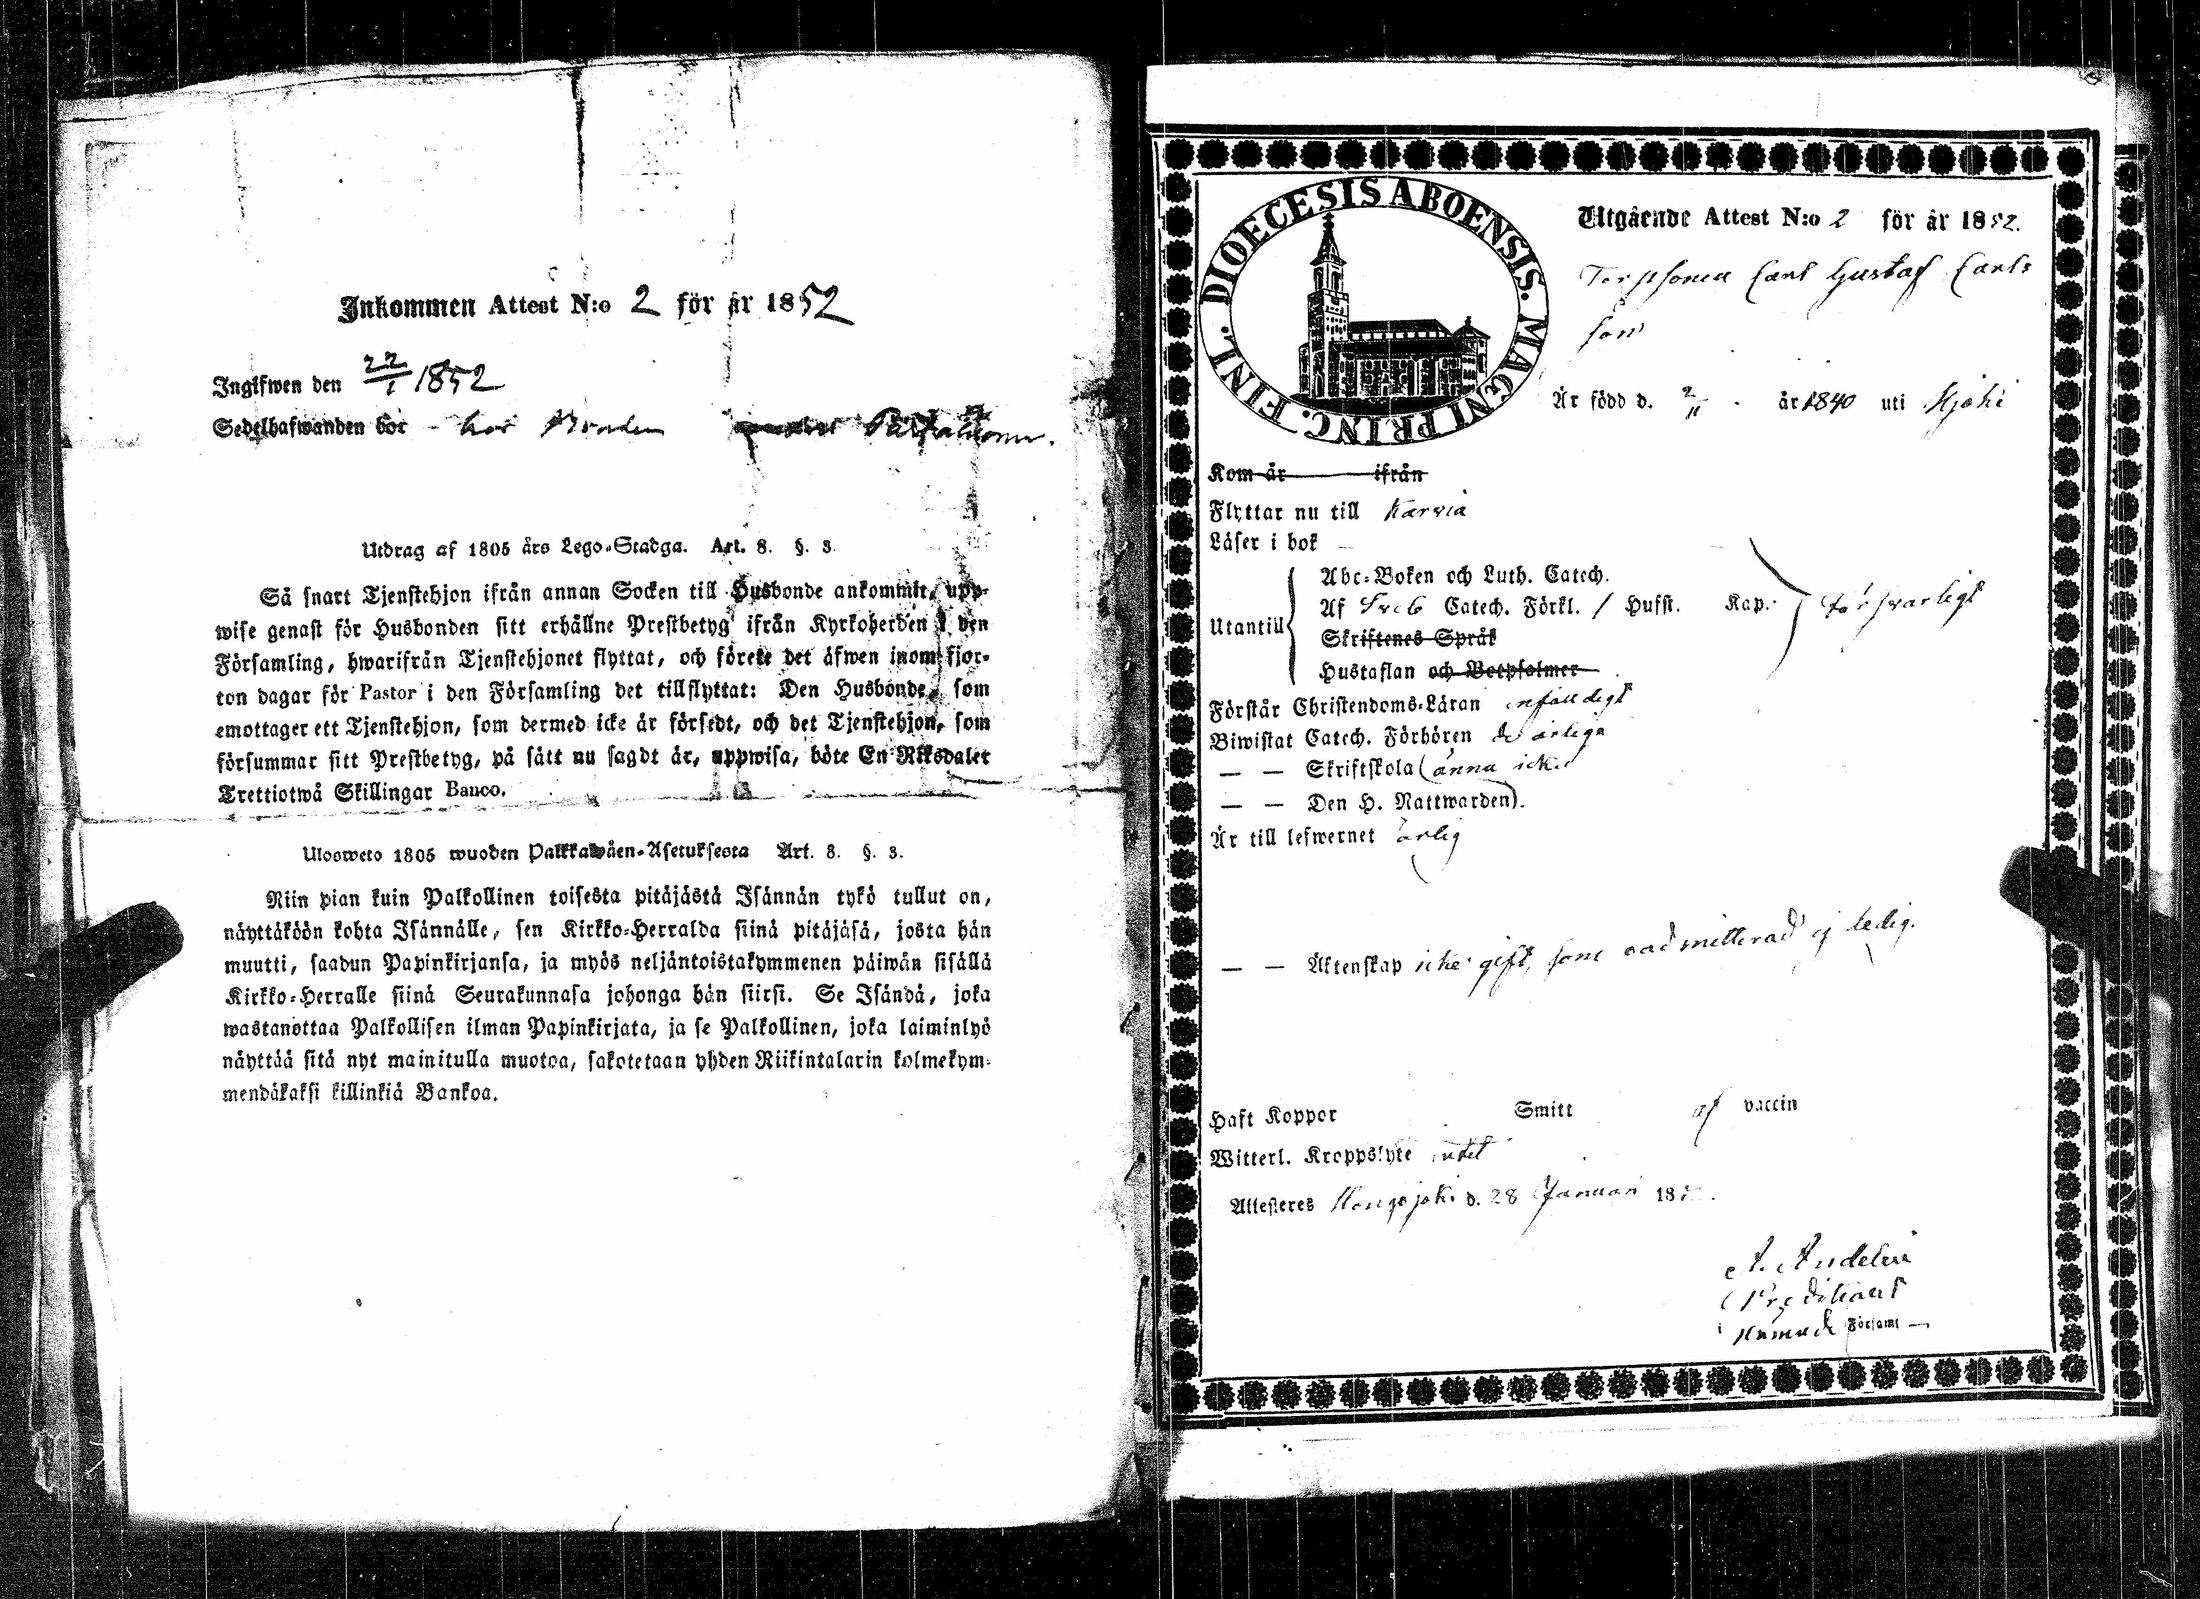 Inkommen Attest N:o 2 för år 1852
Ingifwen den 22/1 1852
Sedelhafwanden bor hos
Utdrag af 1805 års Lego-Stadga. Art. 8. §. 3.
Så snart Tjenstehjon ifrån annan Socken till Husbonde ankommit, upp-
wise genast för Husbonden sitt erhållne Prestbetyg ifrån Kyrkoherden i den
Församling, hwarifrån Tjenstehjonet flyttat, och förete det äfwen inom fjor-
ton dagar för Pastor i den Församling det tillflyttat: Den Husbonde, som
emottager ett Tjenstehjon, som dermed icke är försedt, och det Tjenstehjon, som
försummar sitt Prestbetyg, på sätt nu sagdt är, uppwisa, böte En Riksdaler
Trettiotwå Skillingar Banco.
Ulosweto 1805 wuoden Palkkawäen-Asetuksesta Art. 8. §. 3.
Niin pian kuin Palkollinen toisesta pitäjästä Isännän tykö tullut on,
näyttäköön kohta Isännälle, sen Kirkko-Herralda siinä pitäjäsä, josta hän
muutti, saadun Papinkirjansa, ja myös neljäntoistakymmenen päiwän sisällä
Kirkko-Herralle siinä Seurakunnasa johonga hän siirsi. Se Isändä, joka
wastanottaa Palkollisen ilman Papinkirjata, ja se Palkollinen, joka laiminlyö
näyttää sitä nyt mainitulla muotoa, sakotetaan yhden Riikintalarin kolmekym-
mendäkaksi killinkiä Bankoa.
DIOECESIS ABOENSIS. MAGNI PRINC. FINL.
Utgående Attest N:o 2 för år 1852.
Carl Gustaf Carls
son
Är född d. 2/11 år 1840 uti
Kom år ifrån
Flyttar nu till Karvia
Läser i bok
Utantill
Abc-Boken och Luth. Catech.
Af Sveb Catech. Förkl. / Hufst. Kap. försvarligt
Skriftenes Språk
Hustaflan och Botpsalmer
Förstår Christendoms-Läran enfaldigt
Biwistat Catech. Förhören de årliga
— — Skriftskola (ännu icke
— — Den H. Nattwarden).
Är till lefwernet ärlig
— — Äktenskap icke gift, som oadmitterad ej ledig.
Haft Koppor Smitt af vaccin
Witterl. Kroppslyte intet
Attesteres Hongojoki d. 28 Januari 18
A.
Predikant
Församl